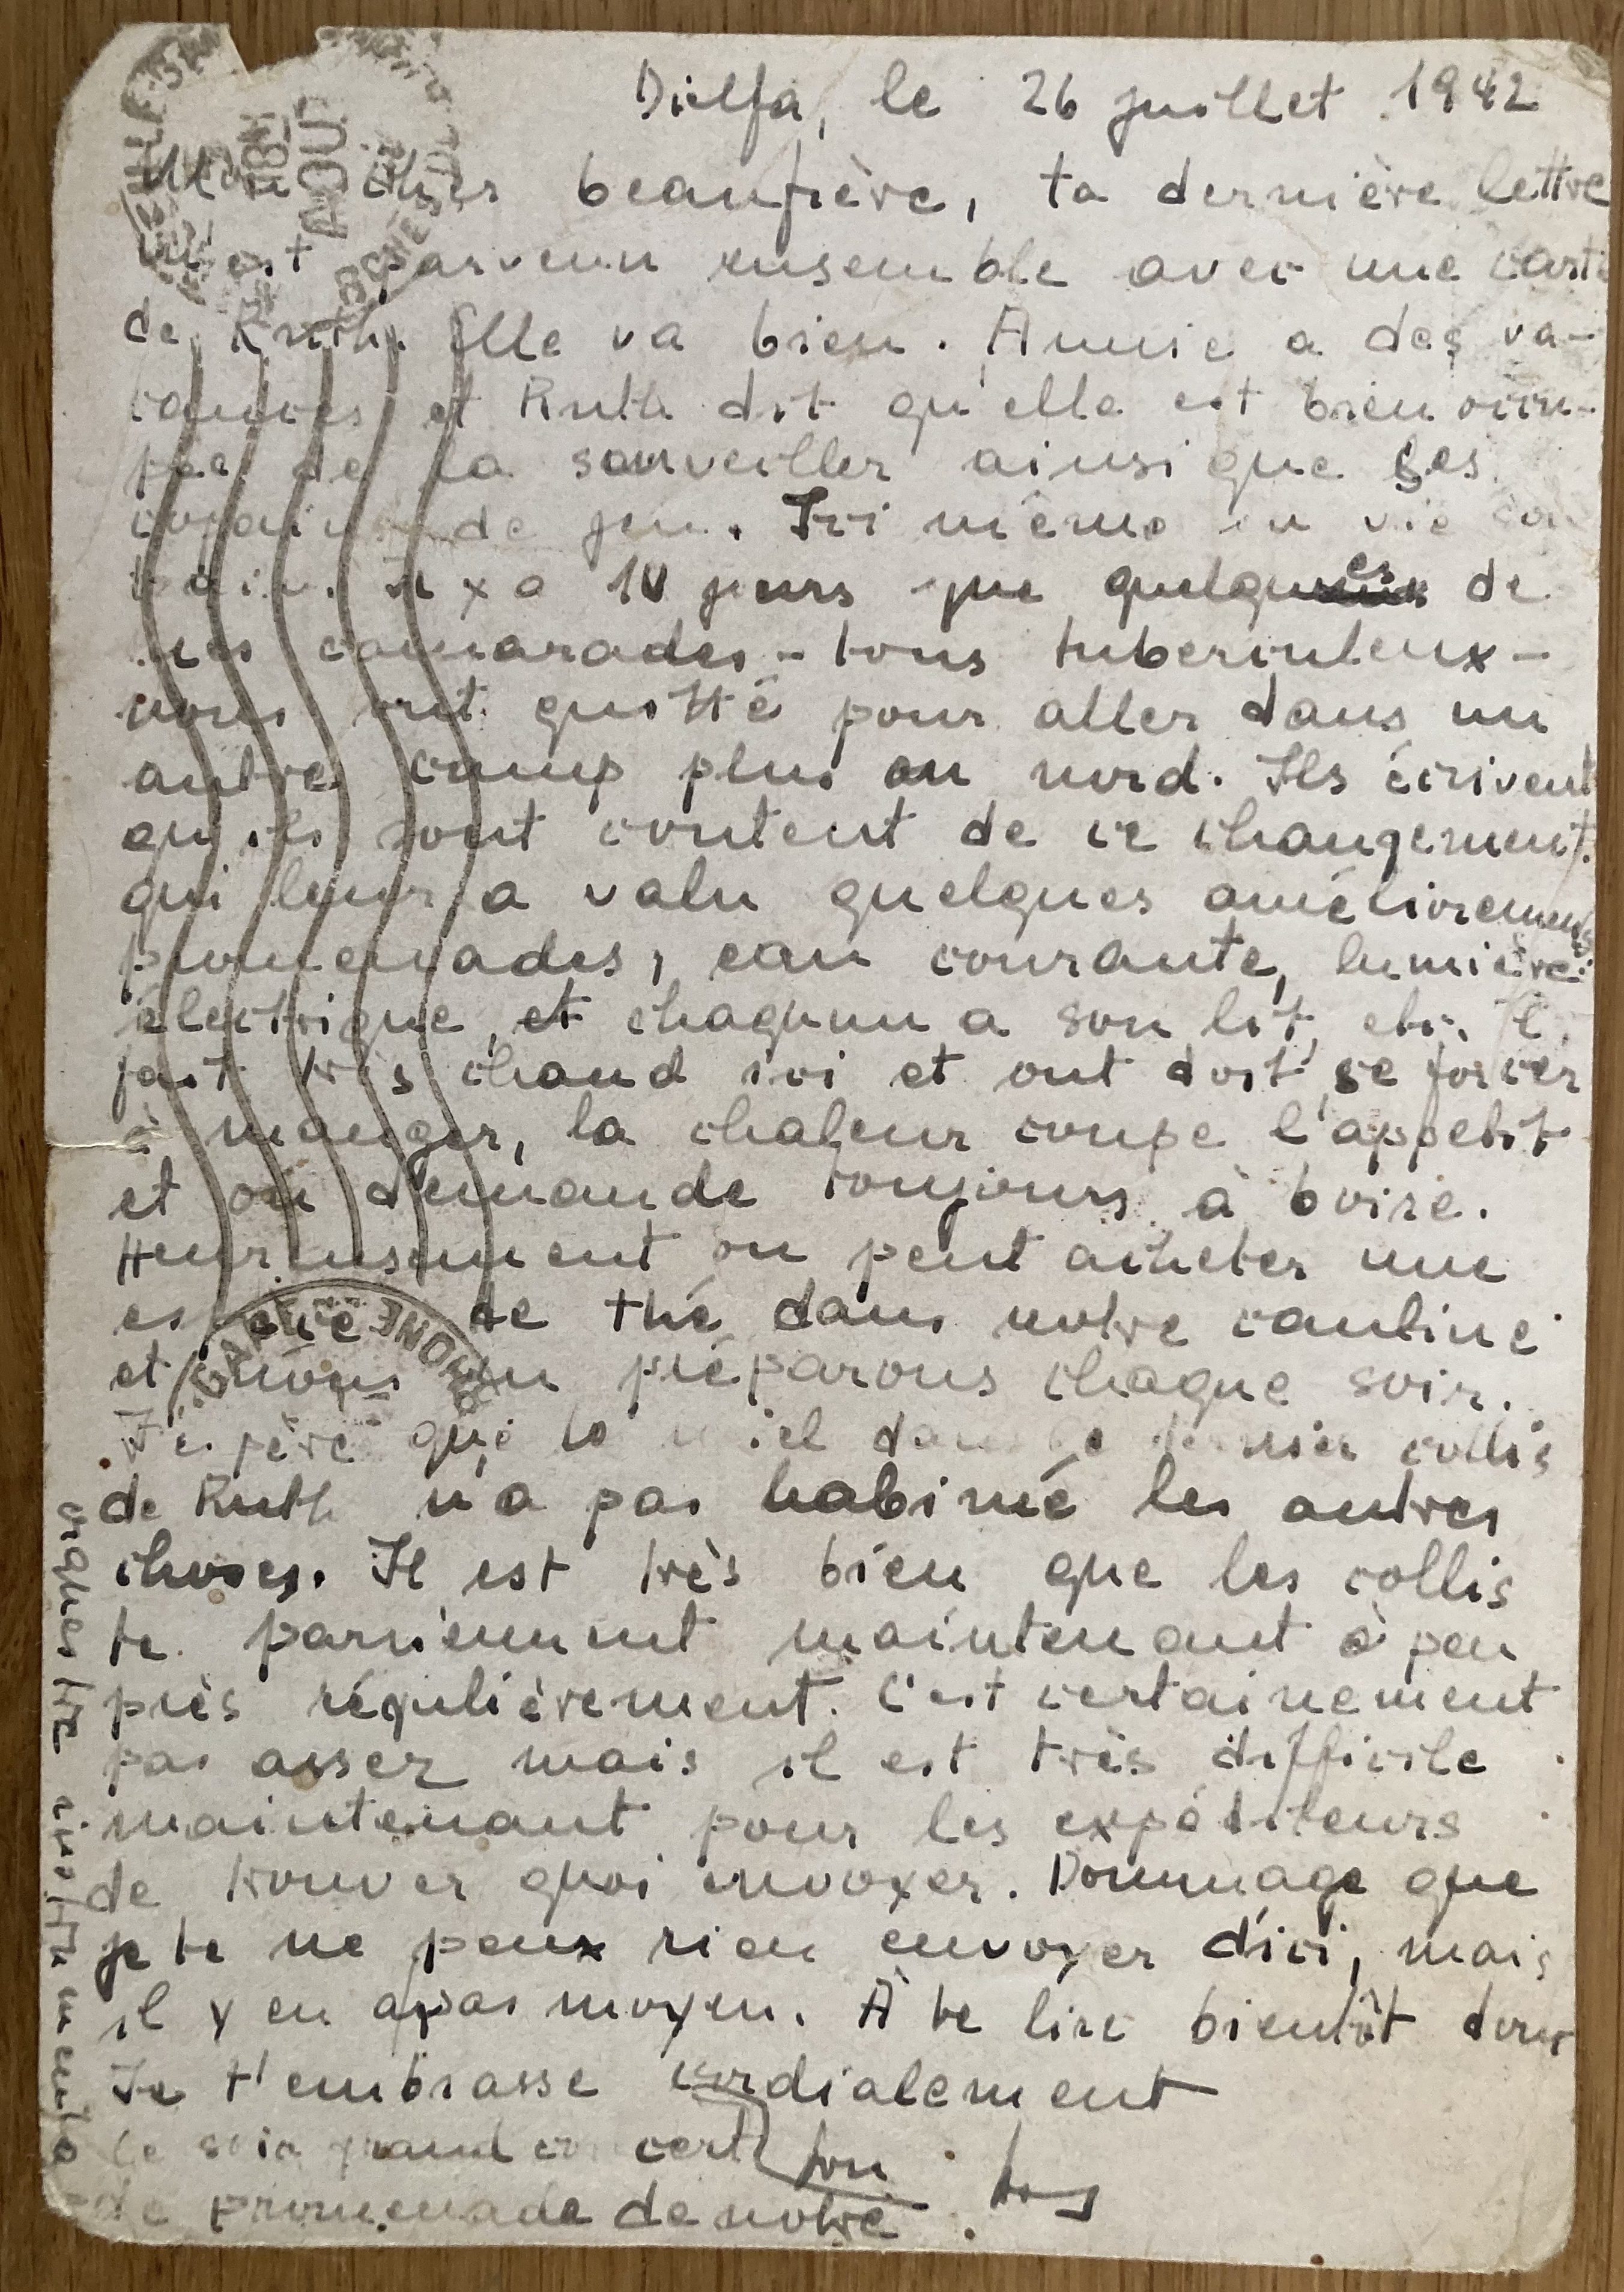 Djelfa, le 26 juillet 1942
Mon cher beaufrère, ta dernière lettre
m'est parvenu ensemble avec une carte
de Ruth. Elle va bien. Annie a des va-
cances et Ruth dit qu'elle est bien occu-
pée de la sourveiller ainsi que ses
copains de jeu. Ici même la vie
Il y a 10 jours que quelques de
mes camarades - tous tuberculeux -
nous ont quitté pour aller dans un
autre camp plus au nord. Ils écrivent
qu'ils sont content de ce changement.
qui leur a valu quelques améliorements
promenades, eau courante, lumière
électrique, et chaqunn a son lit, etc. Il
fait très chaud ici et ont doit se forcer
à manger, la chaleur coupe l'appetit
et on demande toujours à boire.
Heureusement on peut acheter une
espèce de thé dans notre cantine
et nous en préparons chaque soir.
J'espère que le miel dans le dernier collis
de Ruth n'a pas habimé les autres
choses. Il est très bien que les collis
te parviennent maintenant à peu
près régulièrement. C'est certainement
pas assez mais il est très difficile
maintenant pour les expéditeurs
de trouver quoi envoyer. Dommage que
je te ne peux rien envoyer d'ici, mais
il y en a pas moyen. À te lire bientôt donc
Je t'embrasse cordialement
ton
Ce soir grand concert
de promenade de notre
orquestre
AOUT
GARE
RHONE